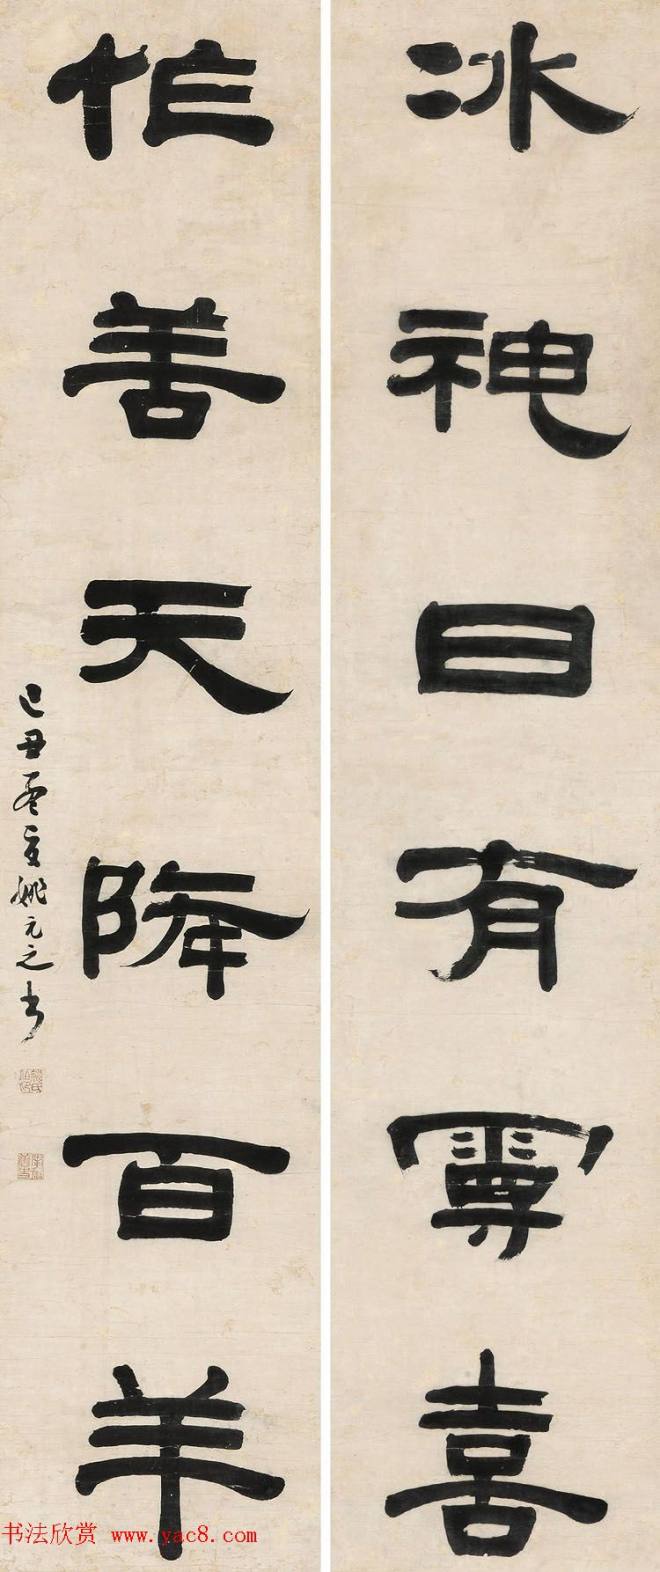 冰神日有喜
作善天降百羊
己丑姚元之书
书法欣赏 www.yac8.com